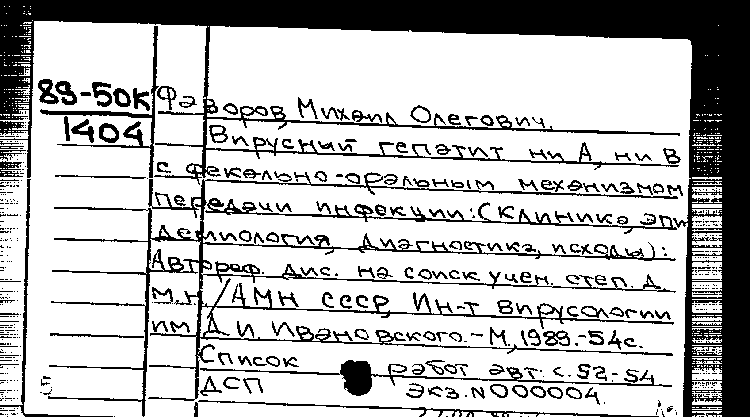 89-50К
1404
Фаворов, Михаил Олегович.
Вирусный гепатит ни А, ни В
с фекально-оральным механизмом
передачи инфекции: (Клиника, эпи
демиология, диагностика, исходы):
Автореф. дис. на соиск. учен. степ. д.
м.н. / АМН СССР, Ин-т вирусологии
им. Д. И. Ивановского. - М., 1989. - 54с.
Список работ авт. с. 52-54
ДСП Экз. N 000004.
5